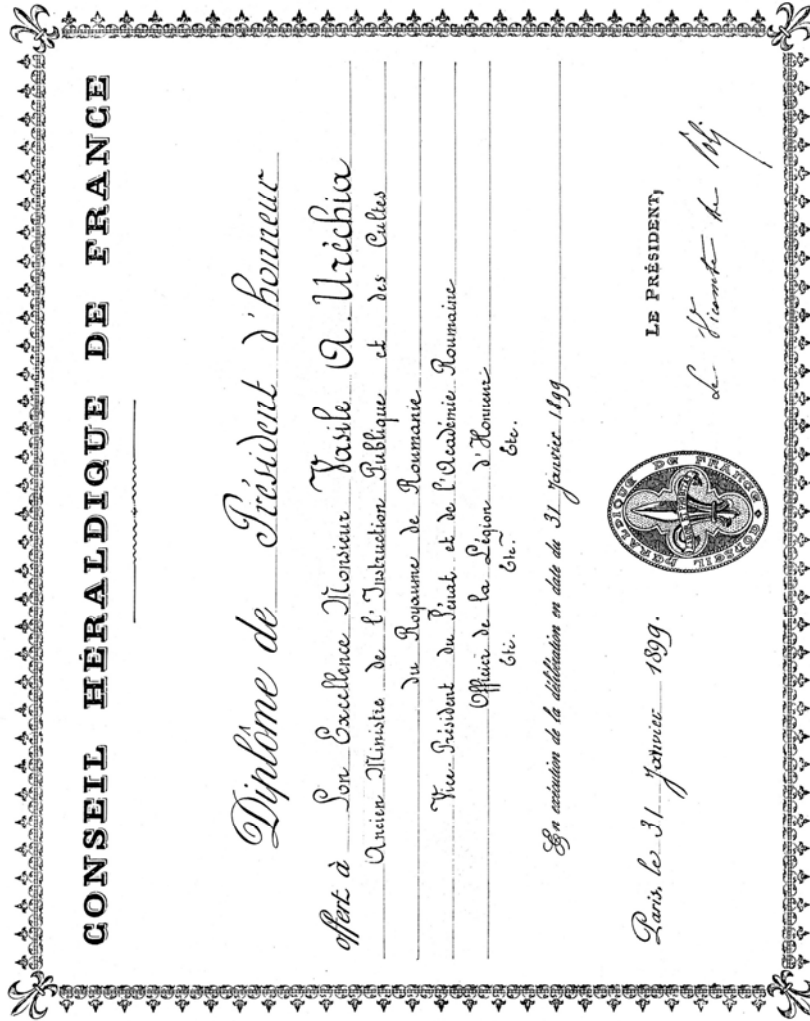 CONSEIL HÉRALDIQUE DE FRANCE
Diplôme de Président d'honneur
offert à Son Excellence Monsieur Vasile A. Uréchia
Ancien Ministre de l'Instruction Publique et des Cultes
du Royaume de Roumanie
Vice-Président du Sénat et de l'Académie Roumaine
Officier de la Légion d'Honneur
Etc. Etc. Etc.
En exécution de la délibération en date du 31 Janvier 1899
Paris, le 31 Janvier 1899.
CONSEIL HERALDIQUE DE FRANCE
LE PRÉSIDENT,
Le Vicomte de Poli